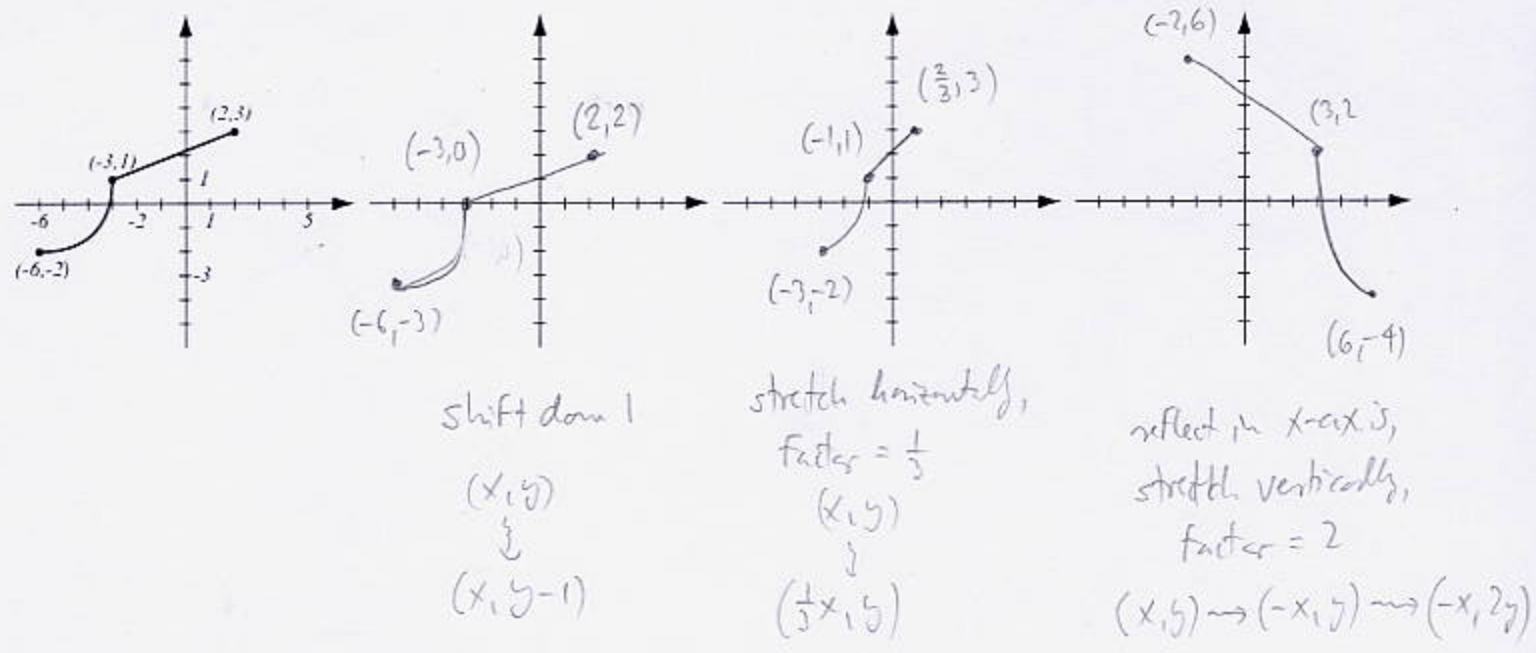 (2,3)
(-3,1)
1
-6
-2
1
5
(-6,-2)
-3
(-3,0)
(2,2)
(-6,-3)
shift down 1
(x,y)
(x, y-1)
(2/3, 3)
(-1,1)
(-3,-2)
stretch horizontally,
factor = 1/3
(x,y)
(1/3x, y)
(-2,6)
(3,2
(6,-4)
reflect in x-axis,
stretch vertically,
factor = 2
(x,y) → (-x,y) → (-x, 2y)